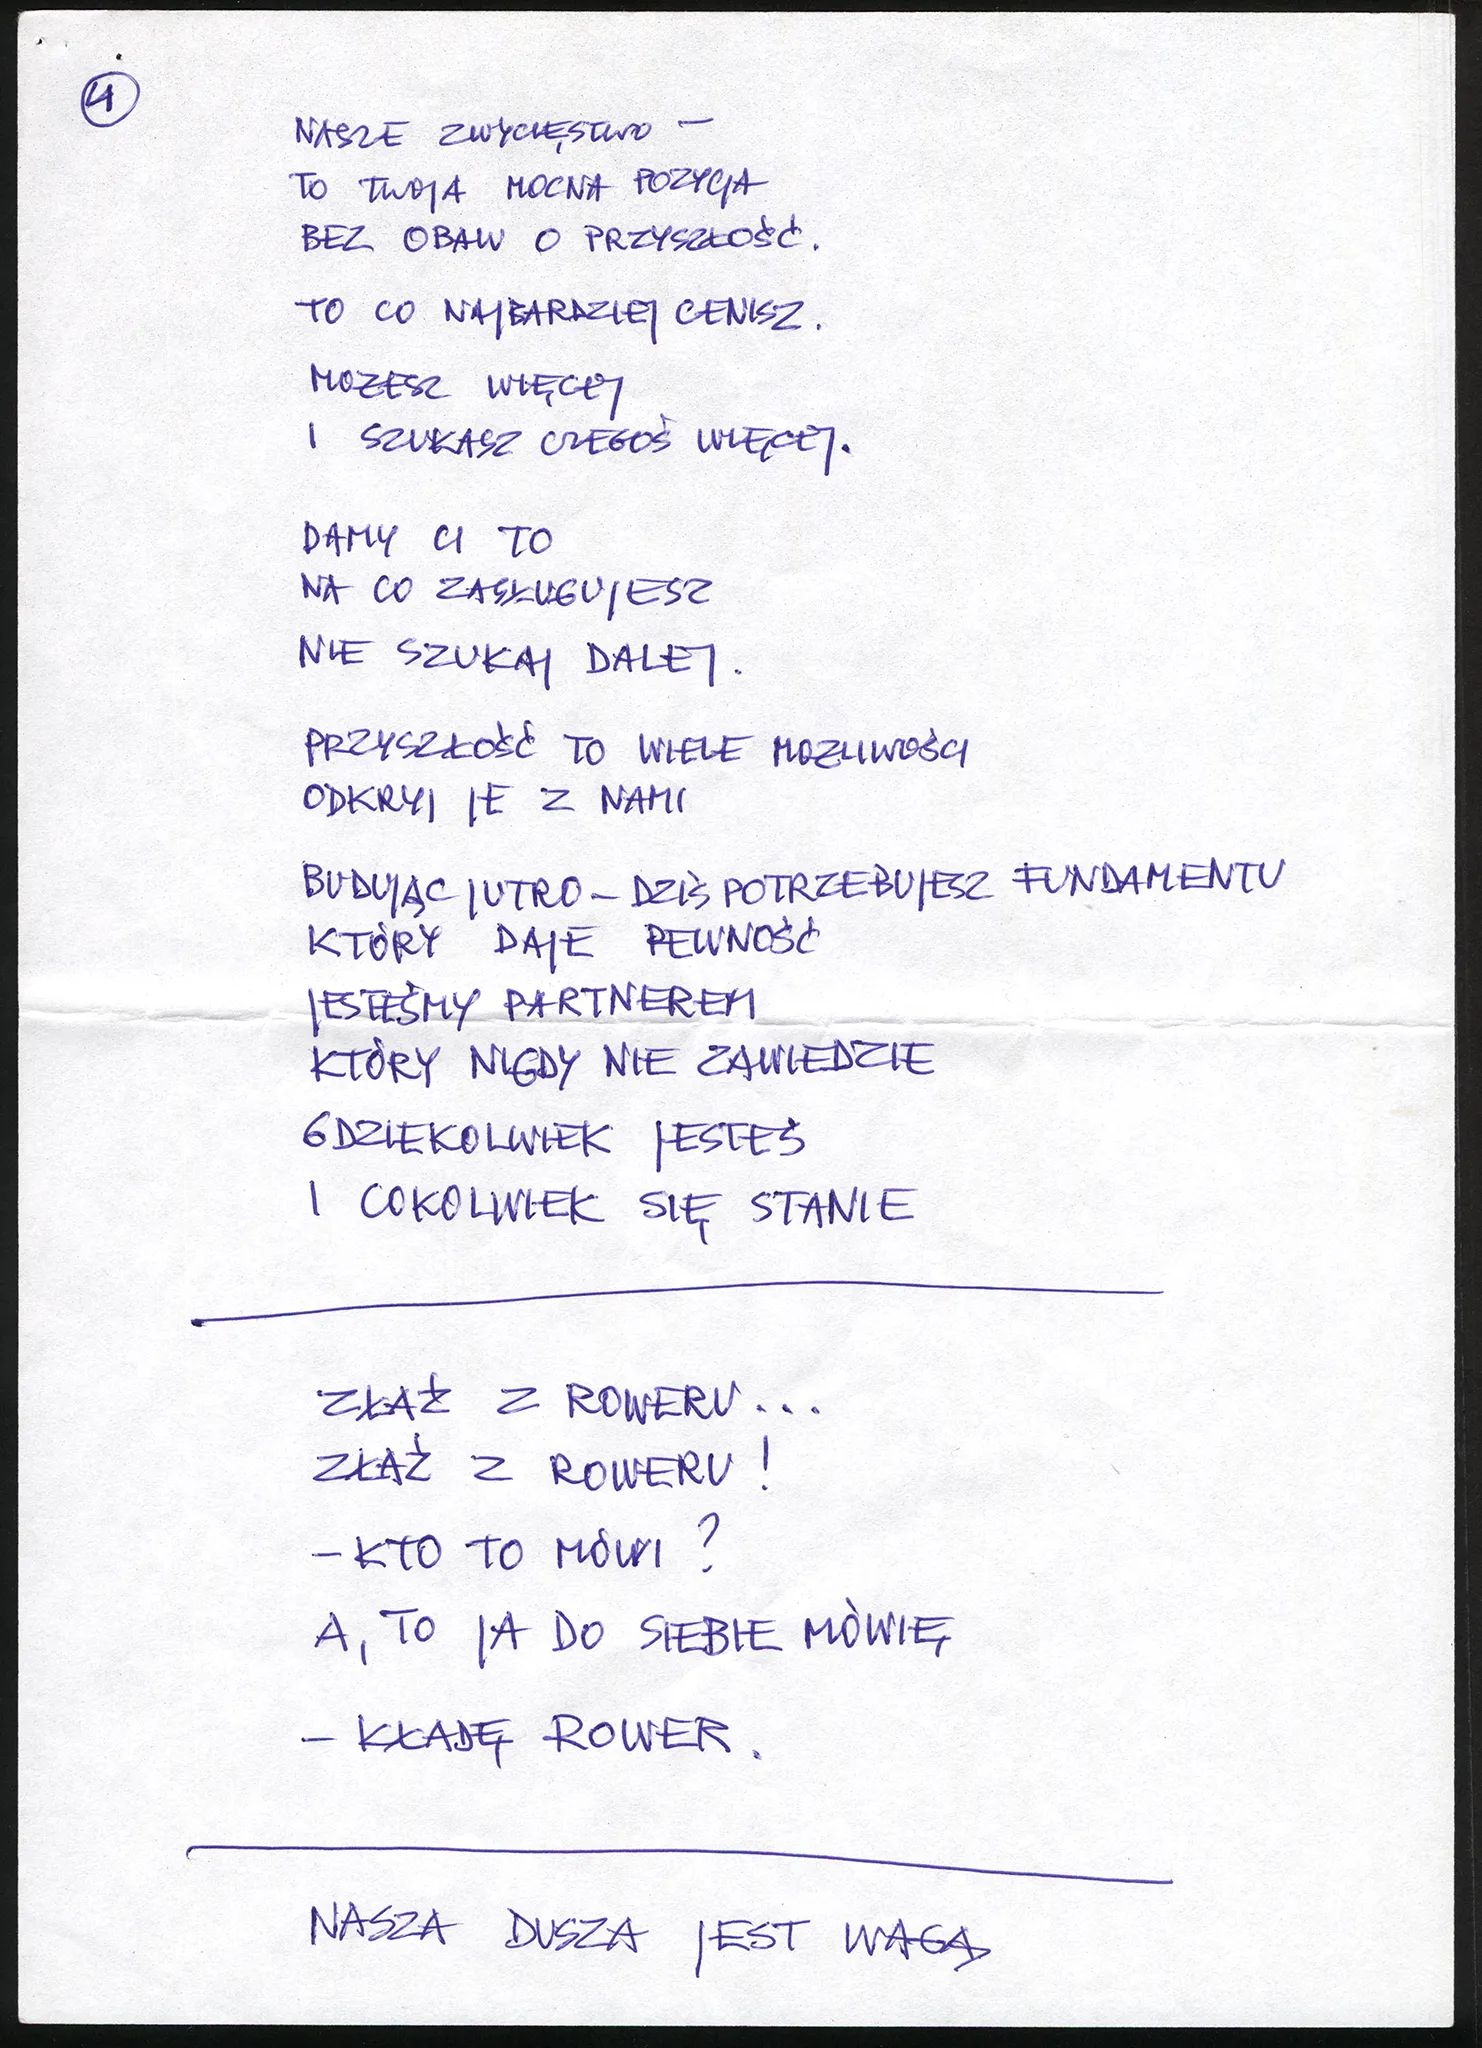 4
NASZE ZWYCIĘSTWO –
TO TWOJA MOCNA POZYCJA
BEZ OBAW O PRZYSZŁOŚĆ.
TO CO NAJBARDZIEJ CENISZ.
MOŻESZ WIĘCEJ
I SZUKASZ CZEGOŚ WIĘCEJ.
DAMY CI TO
NA CO ZASŁUGUJESZ
NIE SZUKAJ DALEJ.
PRZYSZŁOŚĆ TO WIELE MOŻLIWOŚCI
ODKRYJ JE Z NAMI
BUDUJĄC JUTRO – DZIŚ POTRZEBUJESZ FUNDAMENTU
KTÓRY DAJE PEWNOŚĆ
JESTEŚMY PARTNEREM
KTÓRY NIGDY NIE ZAWIEDZIE
GDZIEKOLWIEK JESTEŚ
I COKOLWIEK SIĘ STANIE
ZŁAŹ Z ROWERU...
ZŁAŹ Z ROWERU!
– KTO TO MÓWI?
A, TO JA DO SIEBIE MÓWIĘ
– KŁADĘ ROWER.
NASZA DUSZA JEST WAGĄ